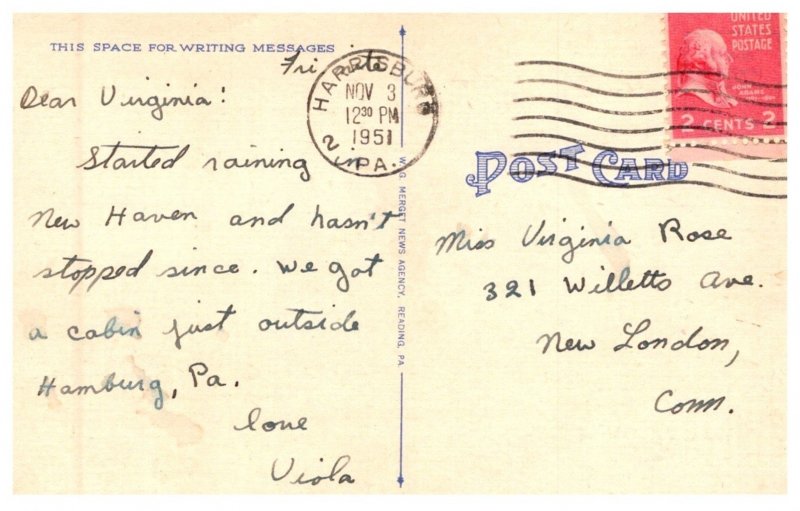 THIS SPACE FOR WRITING MESSAGES
Fri nite
Dear Virginia:
Started raining in
New Haven and hasn't
stopped since. We got
a cabin just outside
Hamburg, Pa.
love
Viola
HARRISBURG
NOV 3
12 30 PM
1951
2
PA.
W.G. MERGET NEWS AGENCY, READING, PA.
UNITED
STATES
POSTAGE
JOHN
ADAMS
2 CENTS 2
POST CARD
Miss Virginia Rose
321 Willetts Ave.
New London,
Conn.